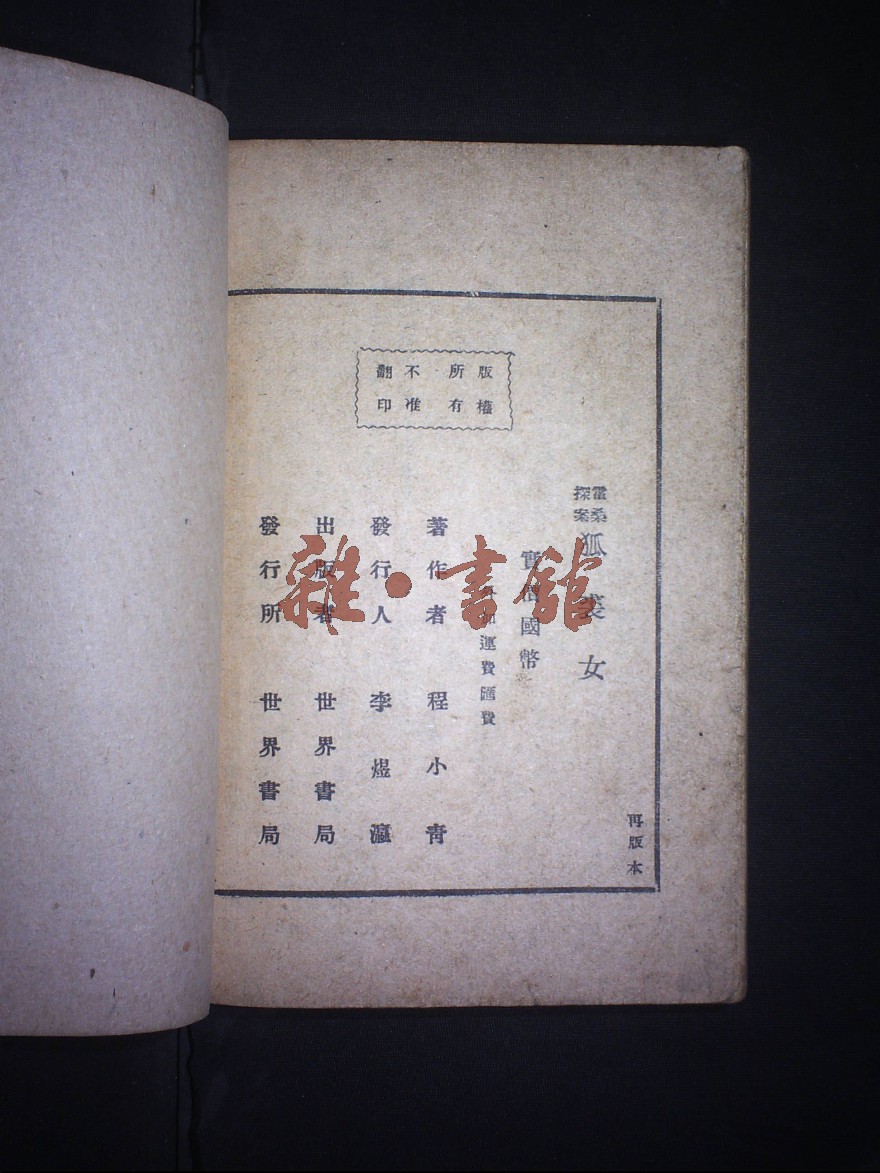 版權
所有
不准
翻印
再版本
霍桑
探案
狐裘女
實價國幣
運費匯費
著作者 程小青
發行人 李煜瀛
出版者 世界書局
發行所 世界書局
雜·書館